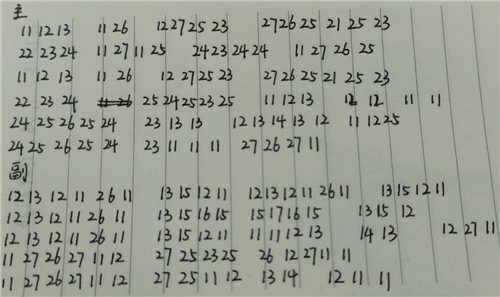 主
11 12 13 11 26 12 27 25 23 27 26 25 21 25 23
22 23 24 11 27 11 25 24 23 24 24 11 27 26 25
11 12 13 11 26 12 27 25 23 27 26 25 21 25 23
22 23 24 11 26 25 24 25 23 25 11 12 13 12 12 11 11
24 25 26 25 24 23 13 13 12 13 14 13 12 11 12 25
24 25 26 25 24 23 11 11 11 27 26 27 11
副
12 13 12 11 26 11 13 15 12 11 12 13 12 11 26 11 13 15 12 11
12 13 12 11 26 11 13 15 16 15 15 17 16 15 13 15 12
12 13 12 11 26 11 13 15 12 11 11 11 12 13 14 13 12 27 11
11 27 26 27 11 12 27 25 23 25 26 12 27 11 11
11 27 26 27 11 12 27 25 11 12 13 14 12 11 11